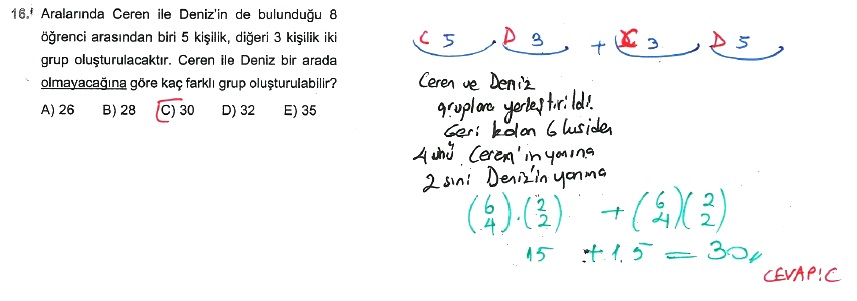 16. Aralarında Ceren ile Deniz'in de bulunduğu 8
öğrenci arasından biri 5 kişilik, diğeri 3 kişilik iki
grup oluşturulacaktır. Ceren ile Deniz bir arada
olmayacağına göre kaç farklı grup oluşturulabilir?
A) 26 B) 28 C) 30 D) 32 E) 35
C 5 D 3 + C 3 D 5
Ceren ve Deniz
gruplara yerleştirildi.
Geri kalan 6 kişiden
4 ünü Ceren'in yanına
2 sini Deniz'in yanına
(6 4).(2 2) + (6 4)(2 2)
15 + 15 = 30
CEVAP: C